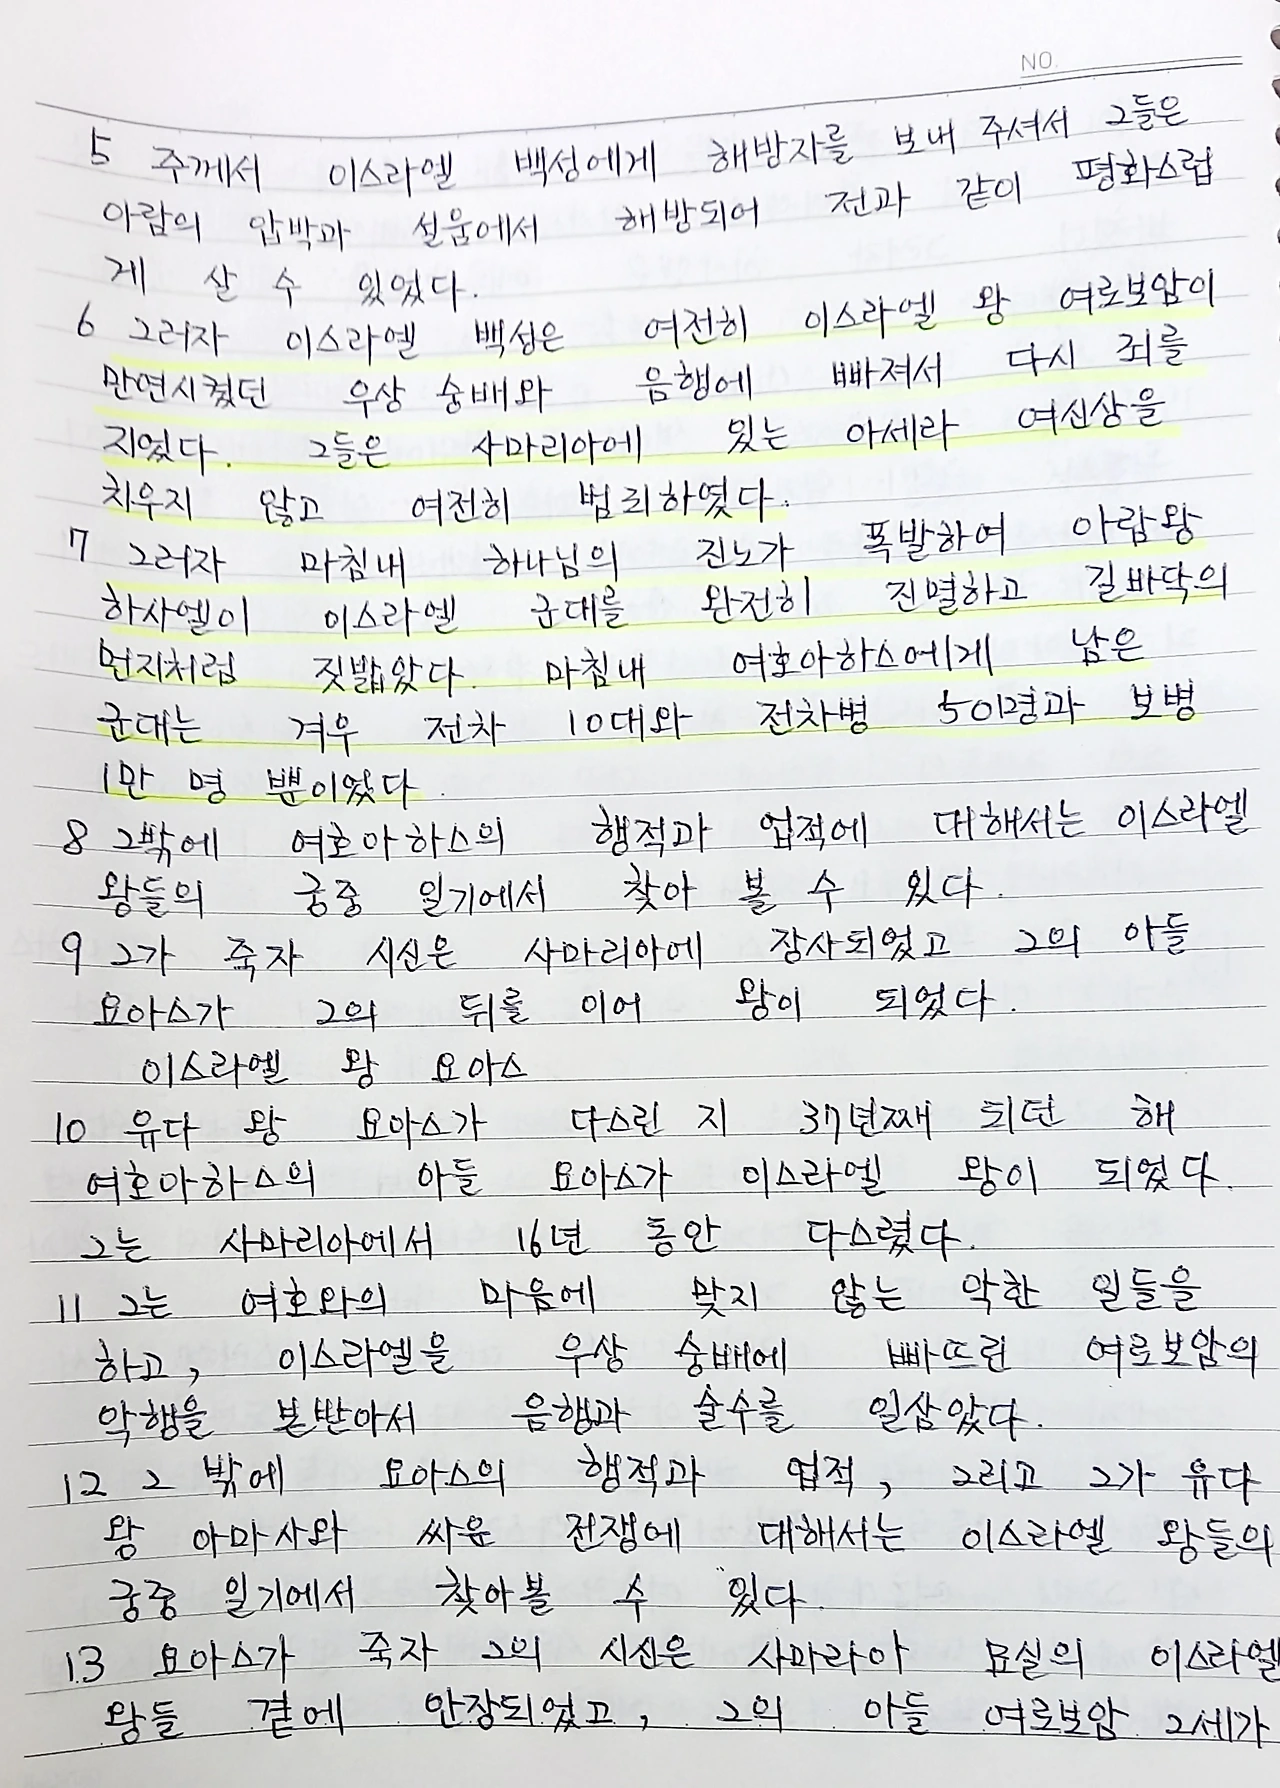 NO.
5 주께서 이스라엘 백성에게 해방자를 보내 주셔서 그들은
아람의 압박과 설움에서 해방되어 전과 같이 평화스럽
게 살 수 있었다.
6 그러자 이스라엘 백성은 여전히 이스라엘 왕 여로보암이
만연시켰던 우상 숭배와 음행에 빠져서 다시 죄를
지었다. 그들은 사마리아에 있는 아세라 여신상을
치우지 않고 여전히 범죄하였다.
7 그러자 마침내 하나님의 진노가 폭발하여 아람왕
하사엘이 이스라엘 군대를 완전히 진멸하고 길바닥의
먼지처럼 짓밟았다. 마침내 여호아하스에게 남은
군대는 겨우 전차 10대와 전차병 50명과 보병
1만 명 뿐이었다.
8 그밖에 여호아하스의 행적과 업적에 대해서는 이스라엘
왕들의 궁중 일기에서 찾아 볼 수 있다.
9 그가 죽자 시신은 사마리아에 장사되었고 그의 아들
요아스가 그의 뒤를 이어 왕이 되었다.
이스라엘 왕 요아스
10 유다 왕 요아스가 다스린 지 37년째 되던 해
여호아하스의 아들 요아스가 이스라엘 왕이 되었다.
그는 사마리아에서 16년 동안 다스렸다.
11 그는 여호와의 마음에 맞지 않는 악한 일들을
하고, 이스라엘을 우상 숭배에 빠뜨린 여로보암의
악행을 본받아서 음행과 술수를 일삼았다.
12 그 밖에 요아스의 행적과 업적, 그리고 그가 유다
왕 아마샤와 싸운 전쟁에 대해서는 이스라엘 왕들의
궁중 일기에서 찾아볼 수 있다.
13 요아스가 죽자 그의 시신은 사마리아 묘실의 이스라엘
왕들 곁에 안장되었고, 그의 아들 여로보암 2세가